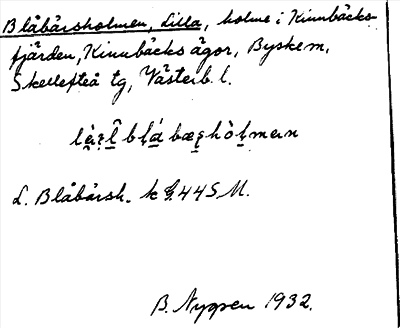 Blåbärsholmen, Lilla, holme i Kinnbäcks-
fjärden, Kinnbäcks ägor, Byske sn,
Skellefteå tg, Västerb. l.
bḷá bæ hòḷmen
L. Blåbärsh. k 44 S M.
B. Nygren 1932.